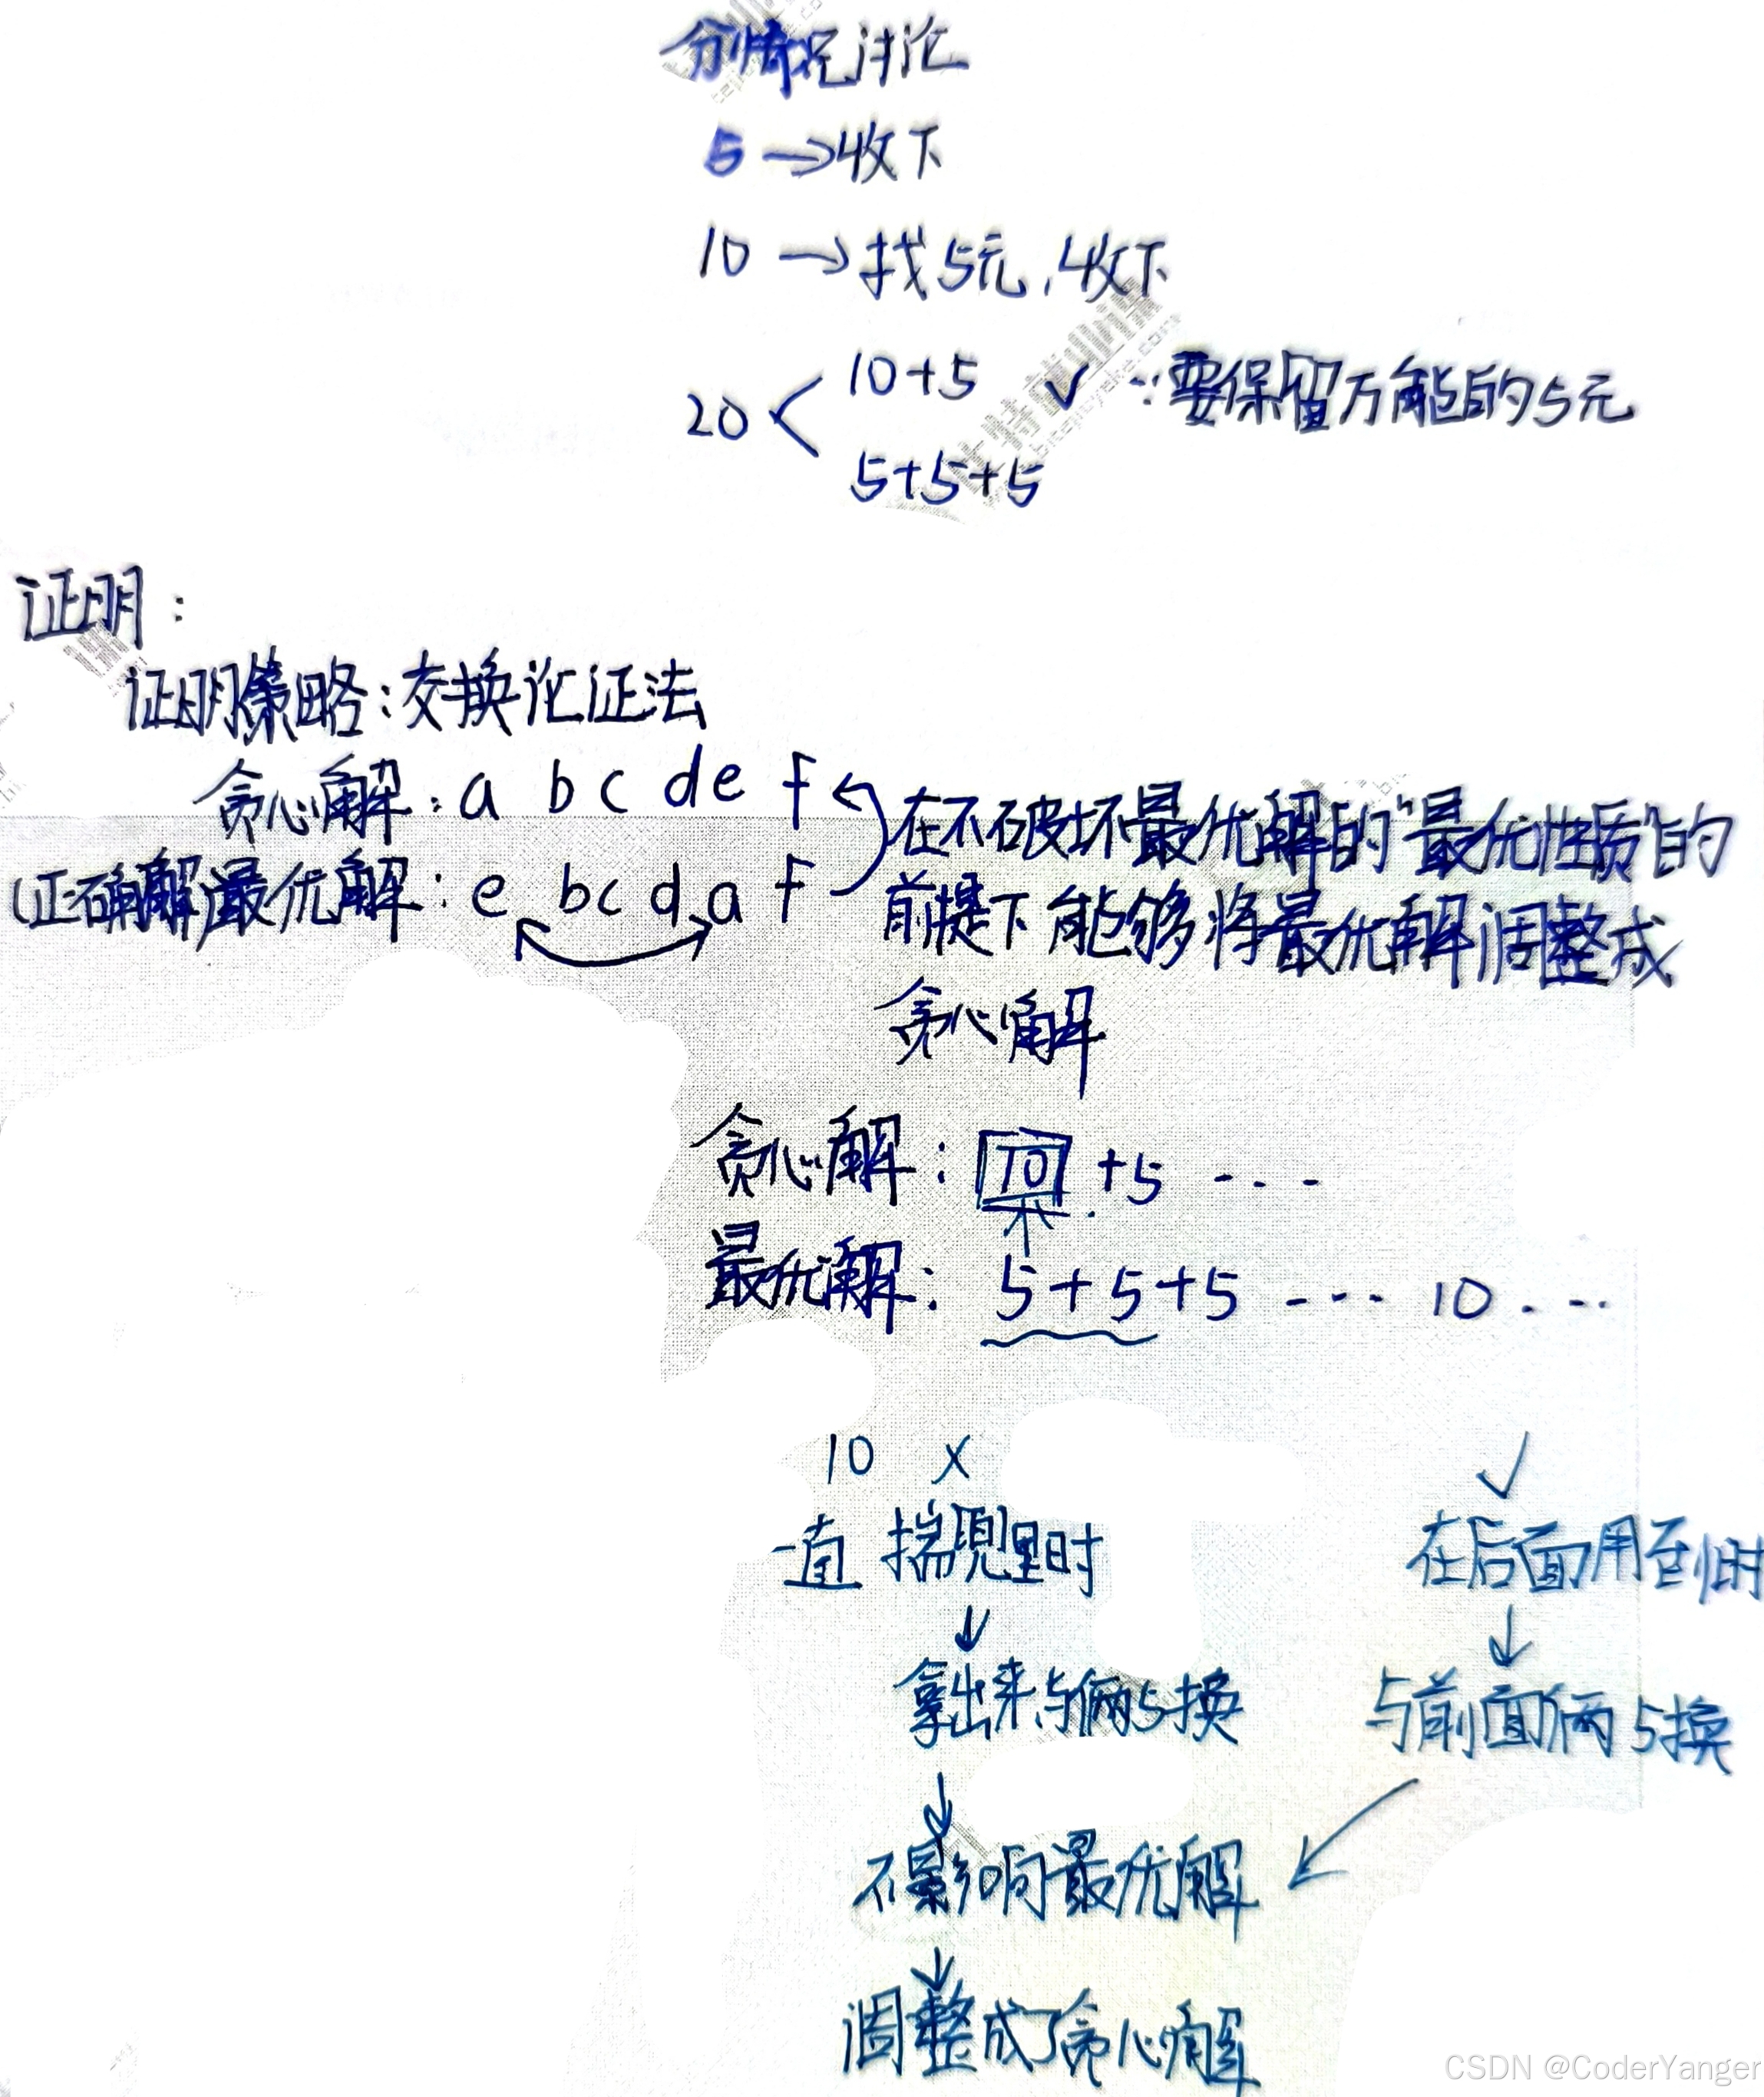 分情况讨论
5 → 收下
10 → 找5元,收下
20 < 10+5 ✓ ∵要保留万能的5元
5+5+5
证明:
证明策略:交换论证法
贪心解:a b c d e f
(正确解)最优解:e b c d a f
在不破坏最优解的"最优性质"的
前提下能够将最优解调整成
贪心解
贪心解:10 +5 ---
最优解:5+5+5 --- 10 ---
10 × ✓
一直揣兜里时 在后面用到时
↓ ↓
拿出来与俩5换 与前面俩5换
↓
不影响最优解
↓
调整成了贪心解
CSDN @CoderYanger